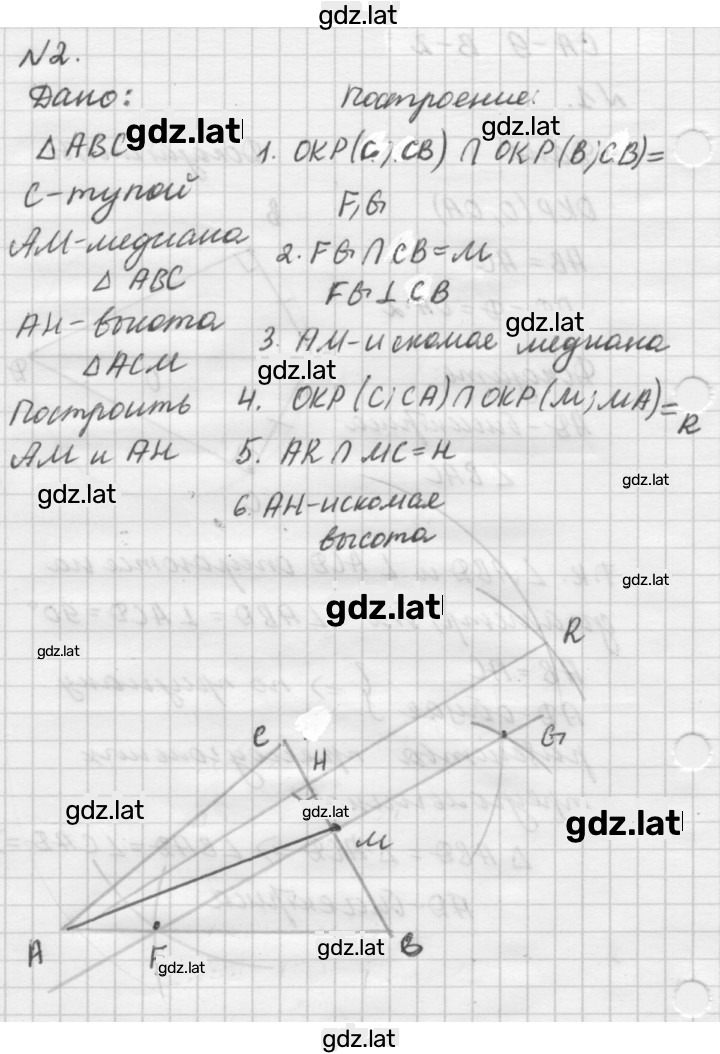 gdz.lat
N2.
Дано:
Построение:
gdz.lat
gdz.lat
△ ABC
1. ОКР(C; CB) ∩ ОКР(B; CB)=
C-тупой
F, G
AM-медиана
△ ABC
2. FG ∩ CB = M
FG ⊥ CB
AH-высота
gdz.lat
△ACM
3. AM-искомая медиана
gdz.lat
Построить
4. ОКР(C; CA) ∩ ОКР(M; MA)= R
AM и AH
5. AR ∩ MC = H
gdz.lat
gdz.lat
6. AH-искомая
высота
gdz.lat
gdz.lat
gdz.lat
R
C
G
H
gdz.lat
gdz.lat
gdz.lat
M
A
F
B
gdz.lat
gdz.lat
gdz.lat